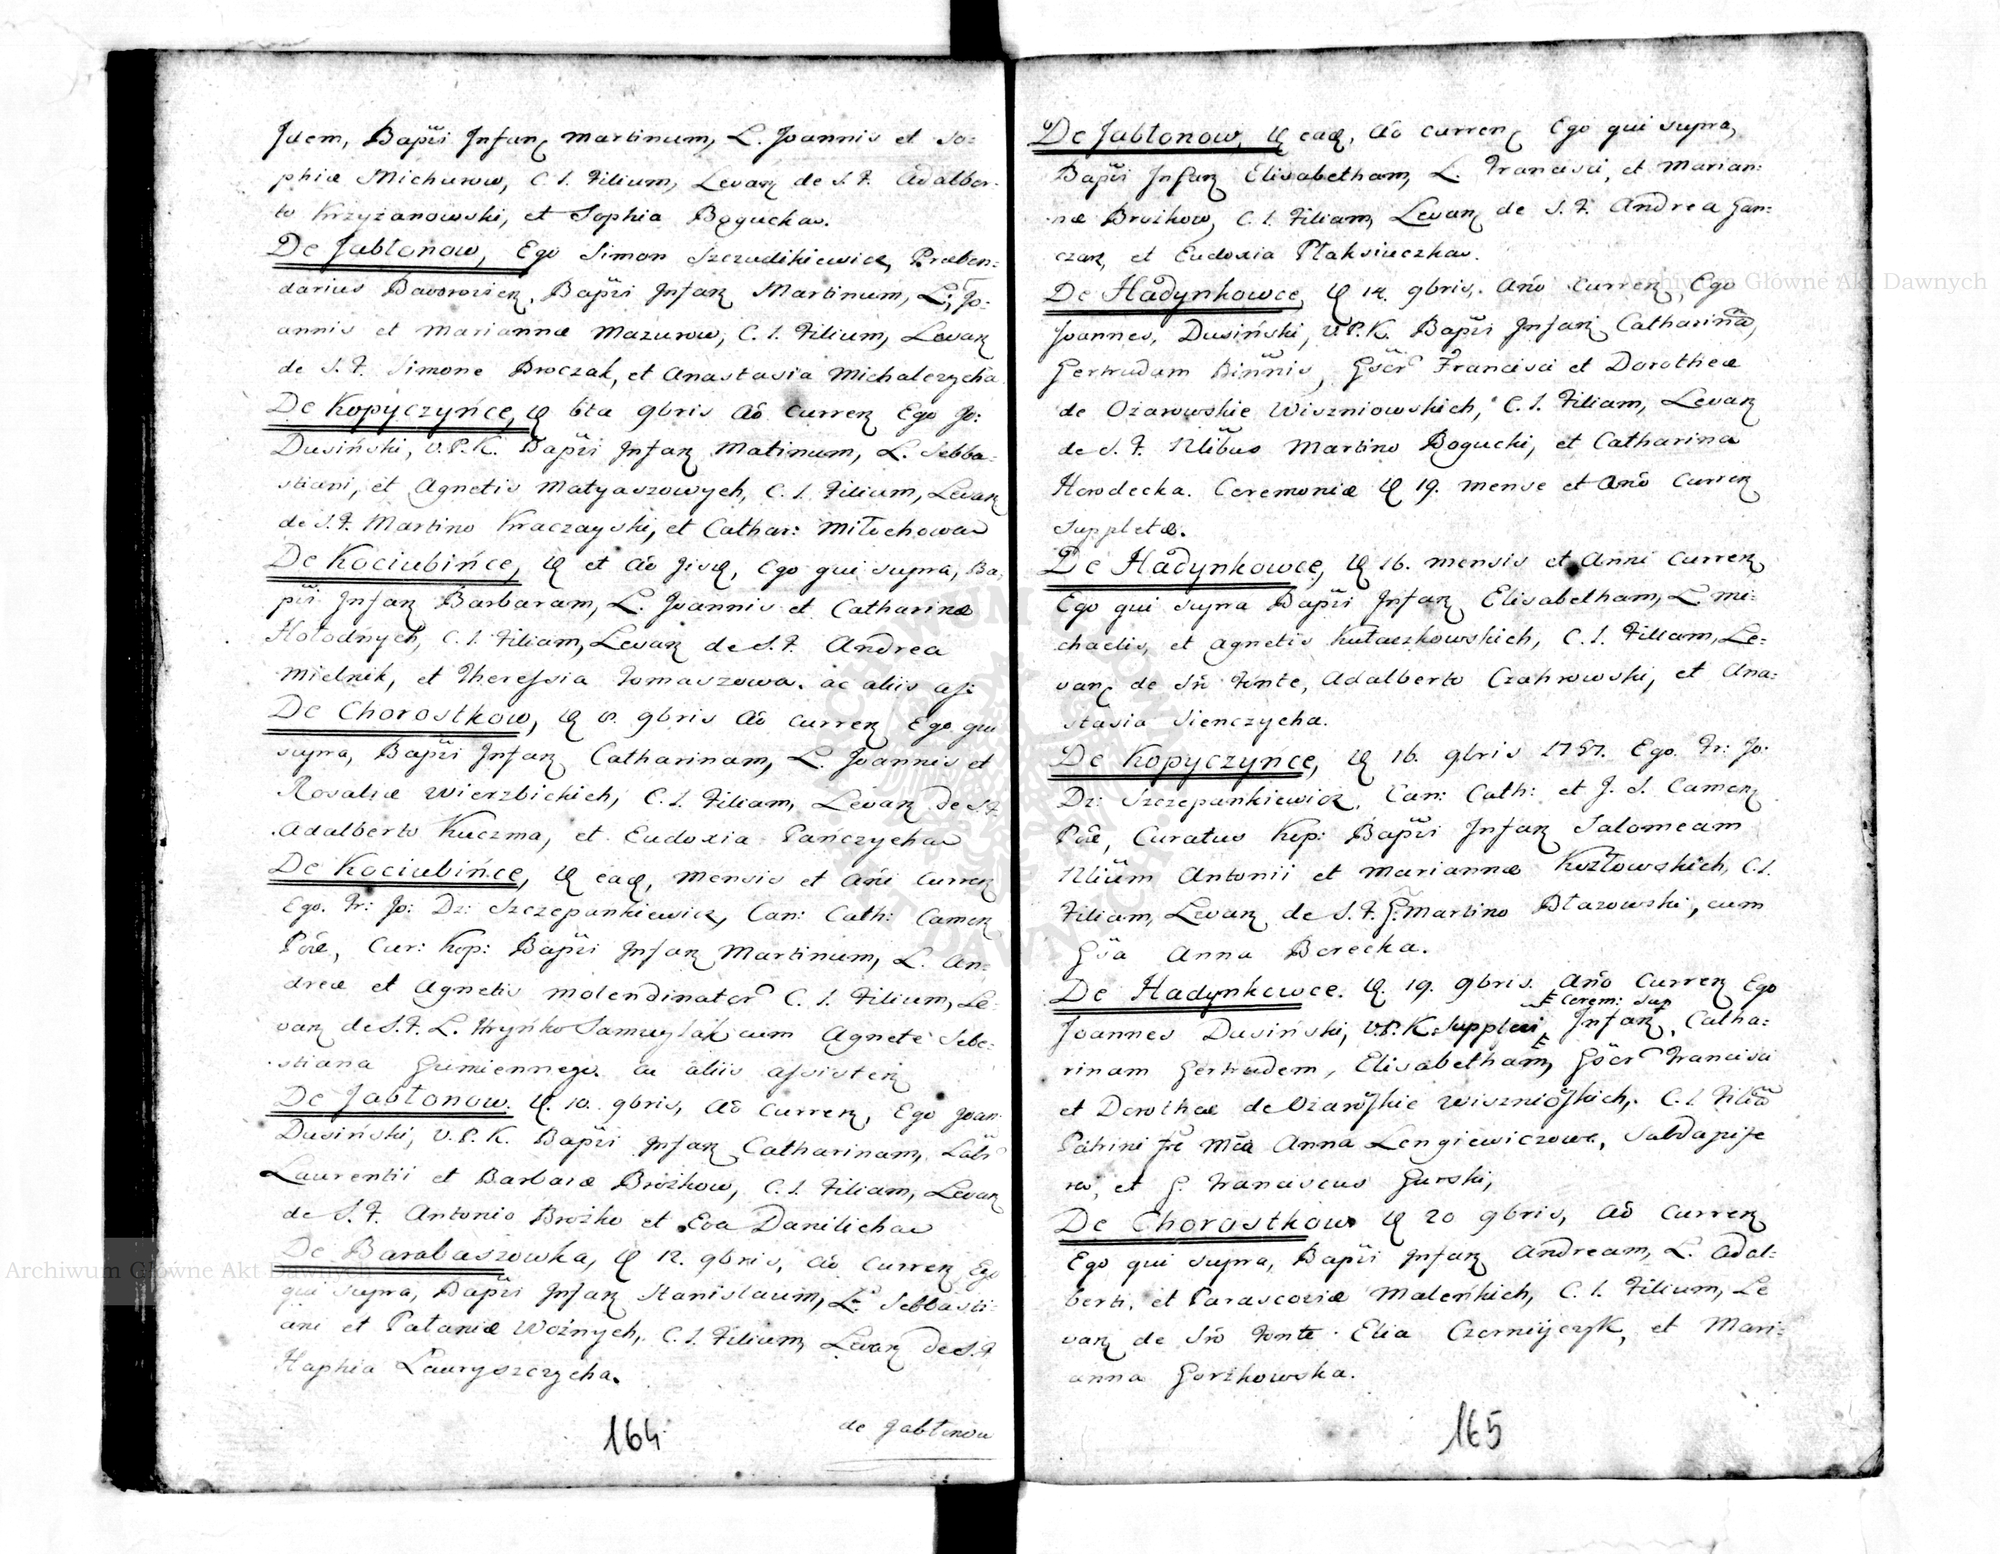 Idem, Bapti Infan Martinum, L. Joannis et So:
phiæ Michurow, C. L. Filium, Levan de S. F. Adalber:
to Krzyżanowski, et Sophia Boguckas.
De Jabłonow, Ego Simon Szczudlikiewicz, Præben:
darius Baworovien, Bapti Infan Martinum, L. Jo:
annis et Mariannæ Mazurow, C. L. Filium, Levan
de S. F. Simone Broczak, et Anastasia Michalczycha
De Kopyczyńce, 6ta 9bris Aô Curren Ego Jo:
Dusiński, V. P. K. Bapti Infan Matinum, L. Sebba:
stiani, et Agnetis Matyaszowych, C. L. Filium, Levan
de S. F. Martino Kraczayski, et Cathar: Miłochowa
De Kociubińce, et Aô Ego qui supra, Ba:
pti Infan Barbaram, L. Joannis et Catharinæ
Hołodnych, C. L. Filiam, Levan de S. F. Andrea
Mielnik, et Theressia Tomaszowa. ac aliis ass:
De Chorostkow, 8. 9bris Aô Curren Ego qui
supra, Bapti Infan Catharinam, L. Joannis et
Rosaliæ Wierzbickich, C. L. Filiam, Levan de S. F.
Adalberto Kuczma, et Eudoxia Panczycha
De Kociubińce, ead, mensis et Ani Curren
Ego. Fr: Jo: Dz: Szczepankiewicz, Can: Cath: Camen
Poæ, Cur: Kop: Bapti Infan Martinum, L. An:
dreæ et Agnetis molendinator C. L. Filium, Le:
van de S. F. L. Hryńko Samuylak cum Agnete Sebe:
stiana Gumiennego. ac aliis assisten
De Jabłonow. 10. 9bris, Aô Curren, Ego Joan:
Dusiński, V. P. K. Bapti Infan Catharinam, Lab:
Laurentii et Barbaræ Brożkow, C. L. Filiam, Levan
de S. F. Antonio Brożko et Eva Danilicha
De Barabaszowka, 12. 9bris, Aô Curren Ego
qui supra, Bapti Infan Stanislaum, L. Sebbasti:
ani et Pataniæ Woźnych, C. L. Filium, Levan de S. F.
Haphia Lauryszczycha.
de Jabłonow
164
De Jabłonow, ead, Aô Curren Ego qui supra,
Bapti Infan Elisabetham, L. Francisci, et Marian:
næ Brożkow, C. L. Filiam, Levan de S. F. Andrea Han:
czar, et Eudoxia Płaksiuczkas.
De Hadynkowce, 14. 9bris. Año Curren, Ego
Joannes, Dusiński, V. P. K. Bapti Infan Catharinã,
Gertrudam Binnis, Gscr Francisci et Dorotheæ
de Ożarowskie Wiszniowskich, C. L. Filiam, Levan
de S. F. Nlibus Martino Bogucki, et Catharina
Horodecka. Ceremoniæ 19. mense et Anô Curren
suppletæ.
De Hadynkowce, 16. mensis et Anni Curren
Ego qui supra Bapti Infan Elisabetham, L. Mi:
chaelis, et Agnetis Kułaczkowskich, C. L. Filiam, Le:
van de Sto Fonte, Adalberto Czahrowski, et Ana:
stasia Sienczycha.
De Kopyczyńce, 16. 9bris 1757. Ego. Fr: Jo:
Dz: Szczepankiewicz, Can: Cath: et J. S. Camen
Poæ, Curatus Kop: Bapti Infan Salomeam
Nlium Antonii et Mariannæ Kozłowskich, C. L.
Filiam, Levan de S. F. G. Martino Błazowski, cum
Gsa Anna Berecka.
De Hadynkowce. 19. 9bris. Año Curren Ego
Cerem: sup
Joannes Dusiński, V. P. K. supplevi Infan, Catha:
rinam Gertrudem, Elisabetham, Gscr Francisci
et Dorotheæ de Ożarosskie Wisznioskich, C. L. Filiã
Patrini fre Mca Anna Lengiewiczowa, Subdapife
ra, et G. Franciscus Gurski,
De Chorostkow 20 9bris, Aô Curren
Ego qui supra, Bapti Infan Andream, L. Adal:
berti, et Parascoviæ Maleńkich, C. L. Filium, Le
van de Sto Fonte. Elia Czerniyczyk, et Mari:
anna Gorżkowska.
165
Archiwum Główne Akt Dawnych
Archiwum Główne Akt Dawnych